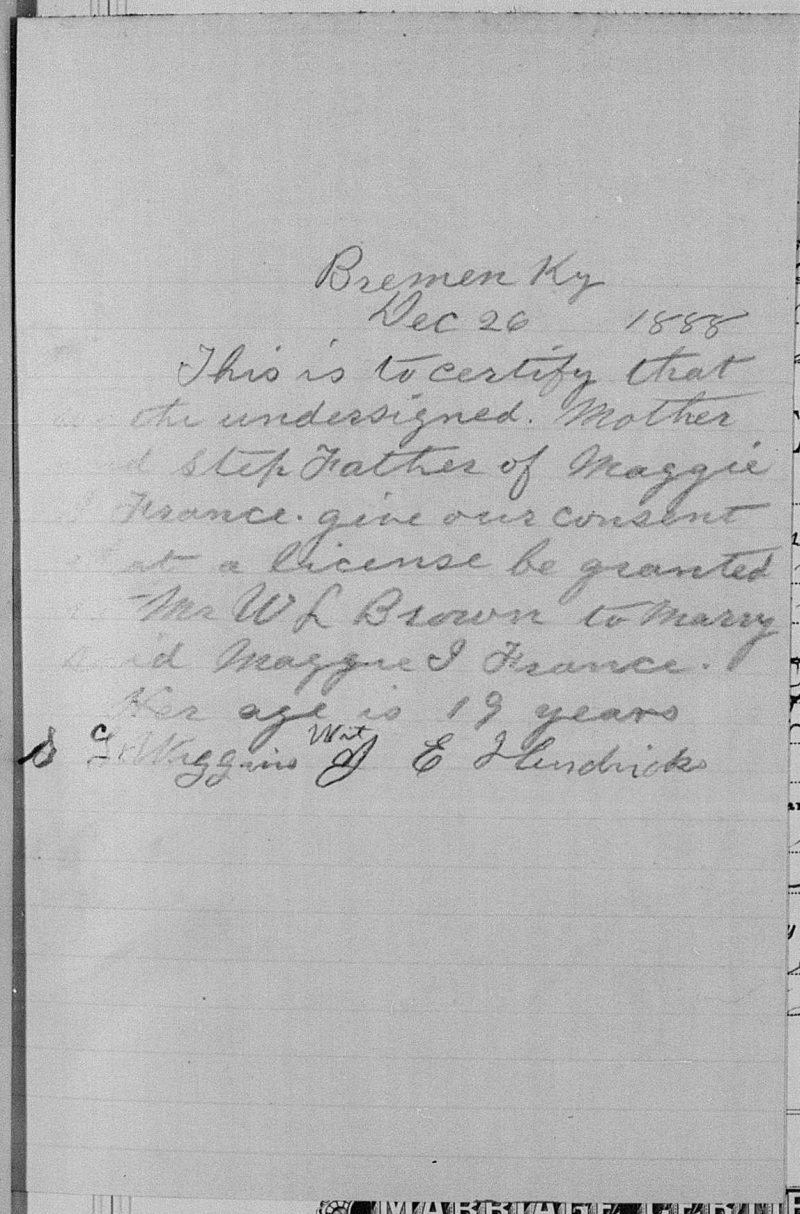 Bremen Ky
Dec 26 1888
This is to certify that
we the undersigned. Mother
and Step Father of Maggie
I France. give our consent
that a license be granted
Mr W L Brown to Marry
said Maggie I France.
Her age is 19 years
Wit
Wiggins J E Hendricks
MARRIAGE